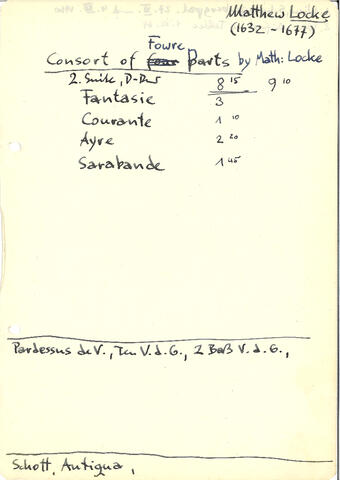 Matthew Locke
(1632 - 1677)
Fowre
Consort of four parts by Math: Locke
2. Suite, D-Dur 8 15 9 10
Fantasie 3
Courante 1 10
Ayre 2 20
Sarabande 1 45
Pardessus de V., Ten V. d. G., 2 Baß V. d. G.,
Schott, Antiqua,